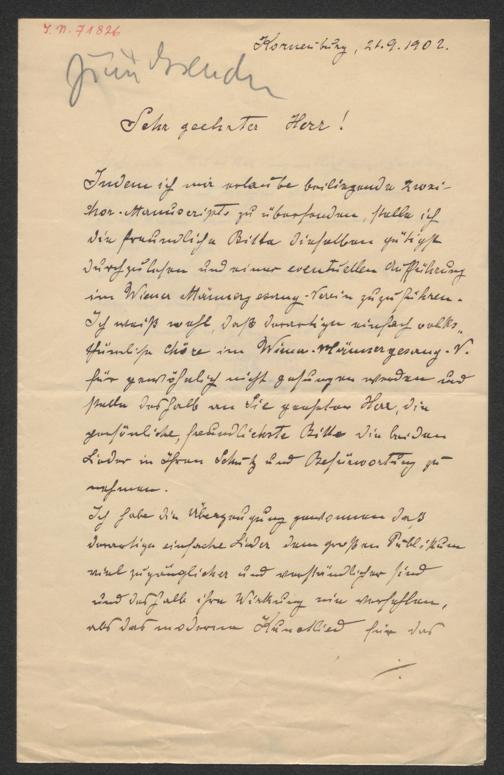 J.N. 71826
Korneuburg, 21.9.1902.
Sehr geehrter Herr!
Indem ich mir erlaube beiliegende zwei
Chor-Manuscripte zu übersenden, stelle ich
die freundliche Bitte dieselben gütigst
durchzulesen und einer eventuellen Aufführung
im Wiener Männergesang-Verein zuzuführen.
Ich weiß wohl, daß derartige einfach volks-
thümliche Chöre im Wiener-Männergesang-V.
für gewöhnlich nicht gesungen werden und
stelle deshalb an Sie geehrter Herr, die
persönliche, freundlichste Bitte die beiden
Lieder in Ihren Schutz und Befürwortung zu
nehmen.
Ich habe die Überzeugung gewonnen daß
derartige einfache Lieder dem großen Publikum
viel zugänglicher und verständlicher sind
und deshalb ihre Wirkung nie verfehlen,
als das moderne Kunstlied für das
./.